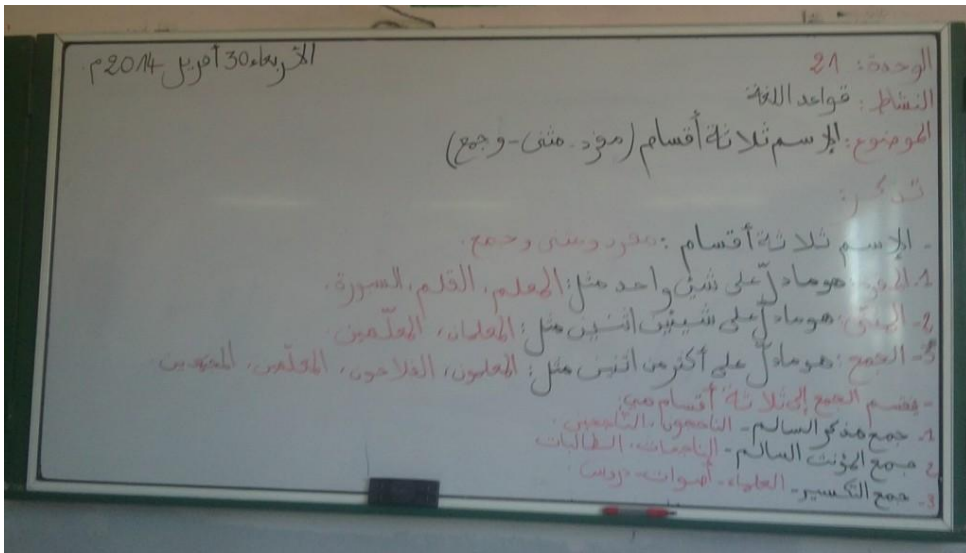 الأربعاء 30 أفريل 2014م.
الوحدة: 21
النشاط: قواعد اللغة
الموضوع: الإسم ثلاثة أقسام (مفرد - مثنى - وجمع)
تذكر:
- الإسم ثلاثة أقسام: مفرد ومثنى وجمع.
1. المفرد: هو ما دلّ على شيئ واحد مثل: المعلم، القلم، السبورة.
2- المثنى: هو ما دلّ على شيئين اثنين مثل: المعلمان، المعلّمين
3- الجمع: هو ما دلّ على أكثر من اثنين مثل: المعلمون، الفلاحون، المعلّمين، المجتهدين
- ينقسم الجمع إلى ثلاثة أقسام هي:
1- جمع مذكر السالم - الناجحون، الناجحين
2- جمع المؤنث السالم - الناجحات، الطالبات
3- جمع التكسير - العلماء - أصوات - دروس